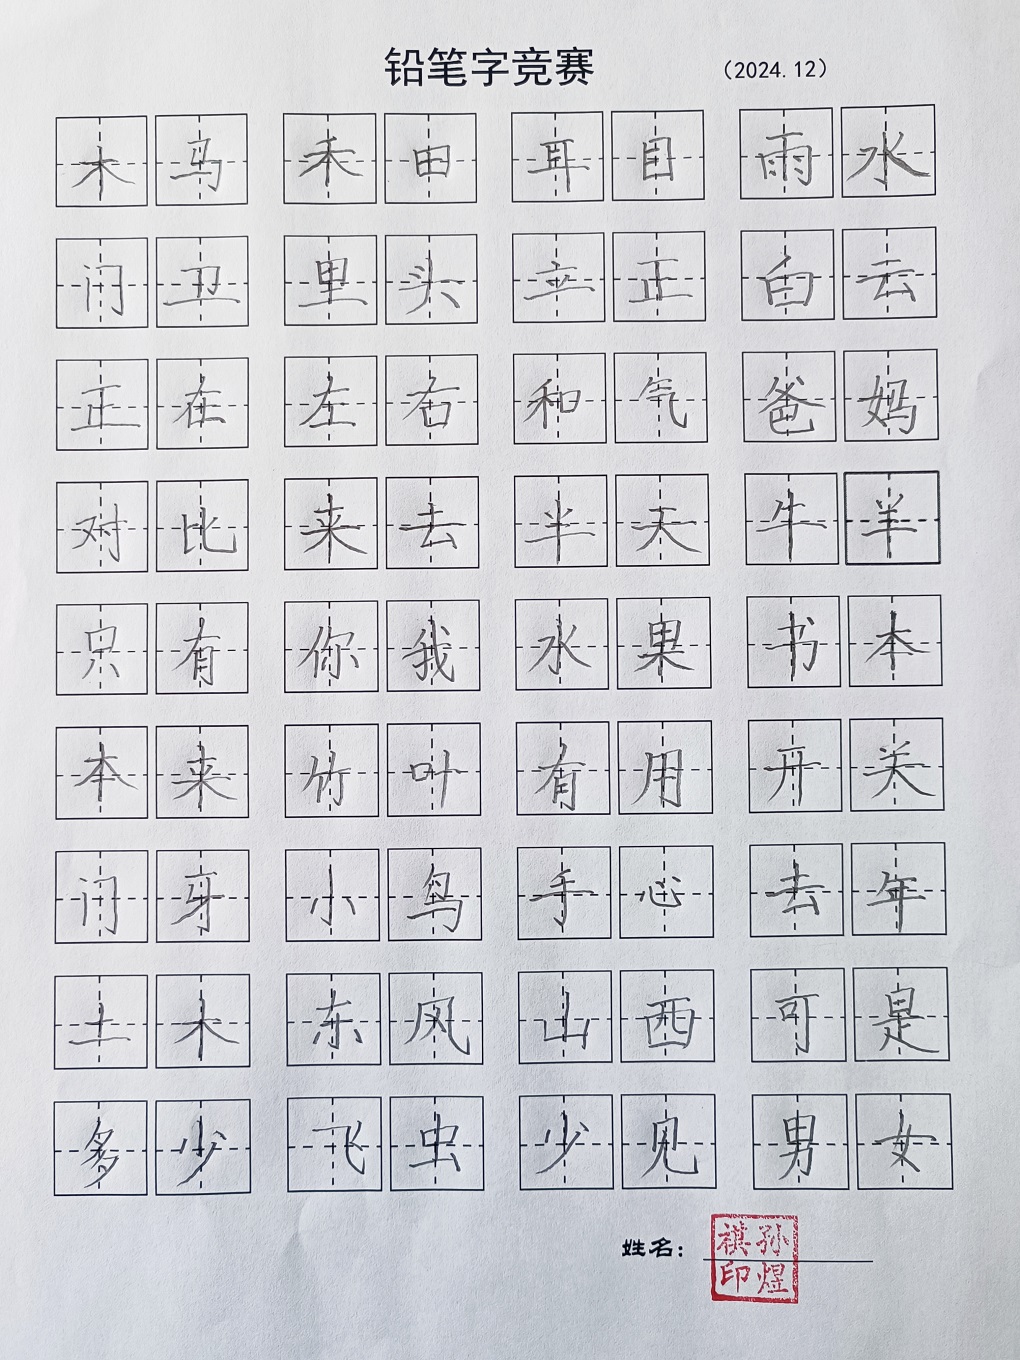 铅笔字竞赛 （2024.12）
木马 禾田 耳目 雨水
门卫 里头 立正 白云
正在 左右 和气 爸妈
对比 来去 半天 牛羊
只有 你我 水果 书本
本来 竹叶 有用 开关
门牙 小鸟 手心 去年
土木 东风 山西 可是
多少 飞虫 少见 男女
姓名： 孙煜祺印